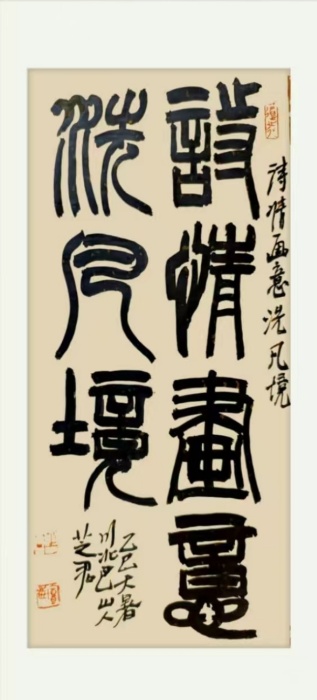 诗情画意洗凡境
詩情畫意
洗凡境
乙巳大暑
川北巴山人
芝君